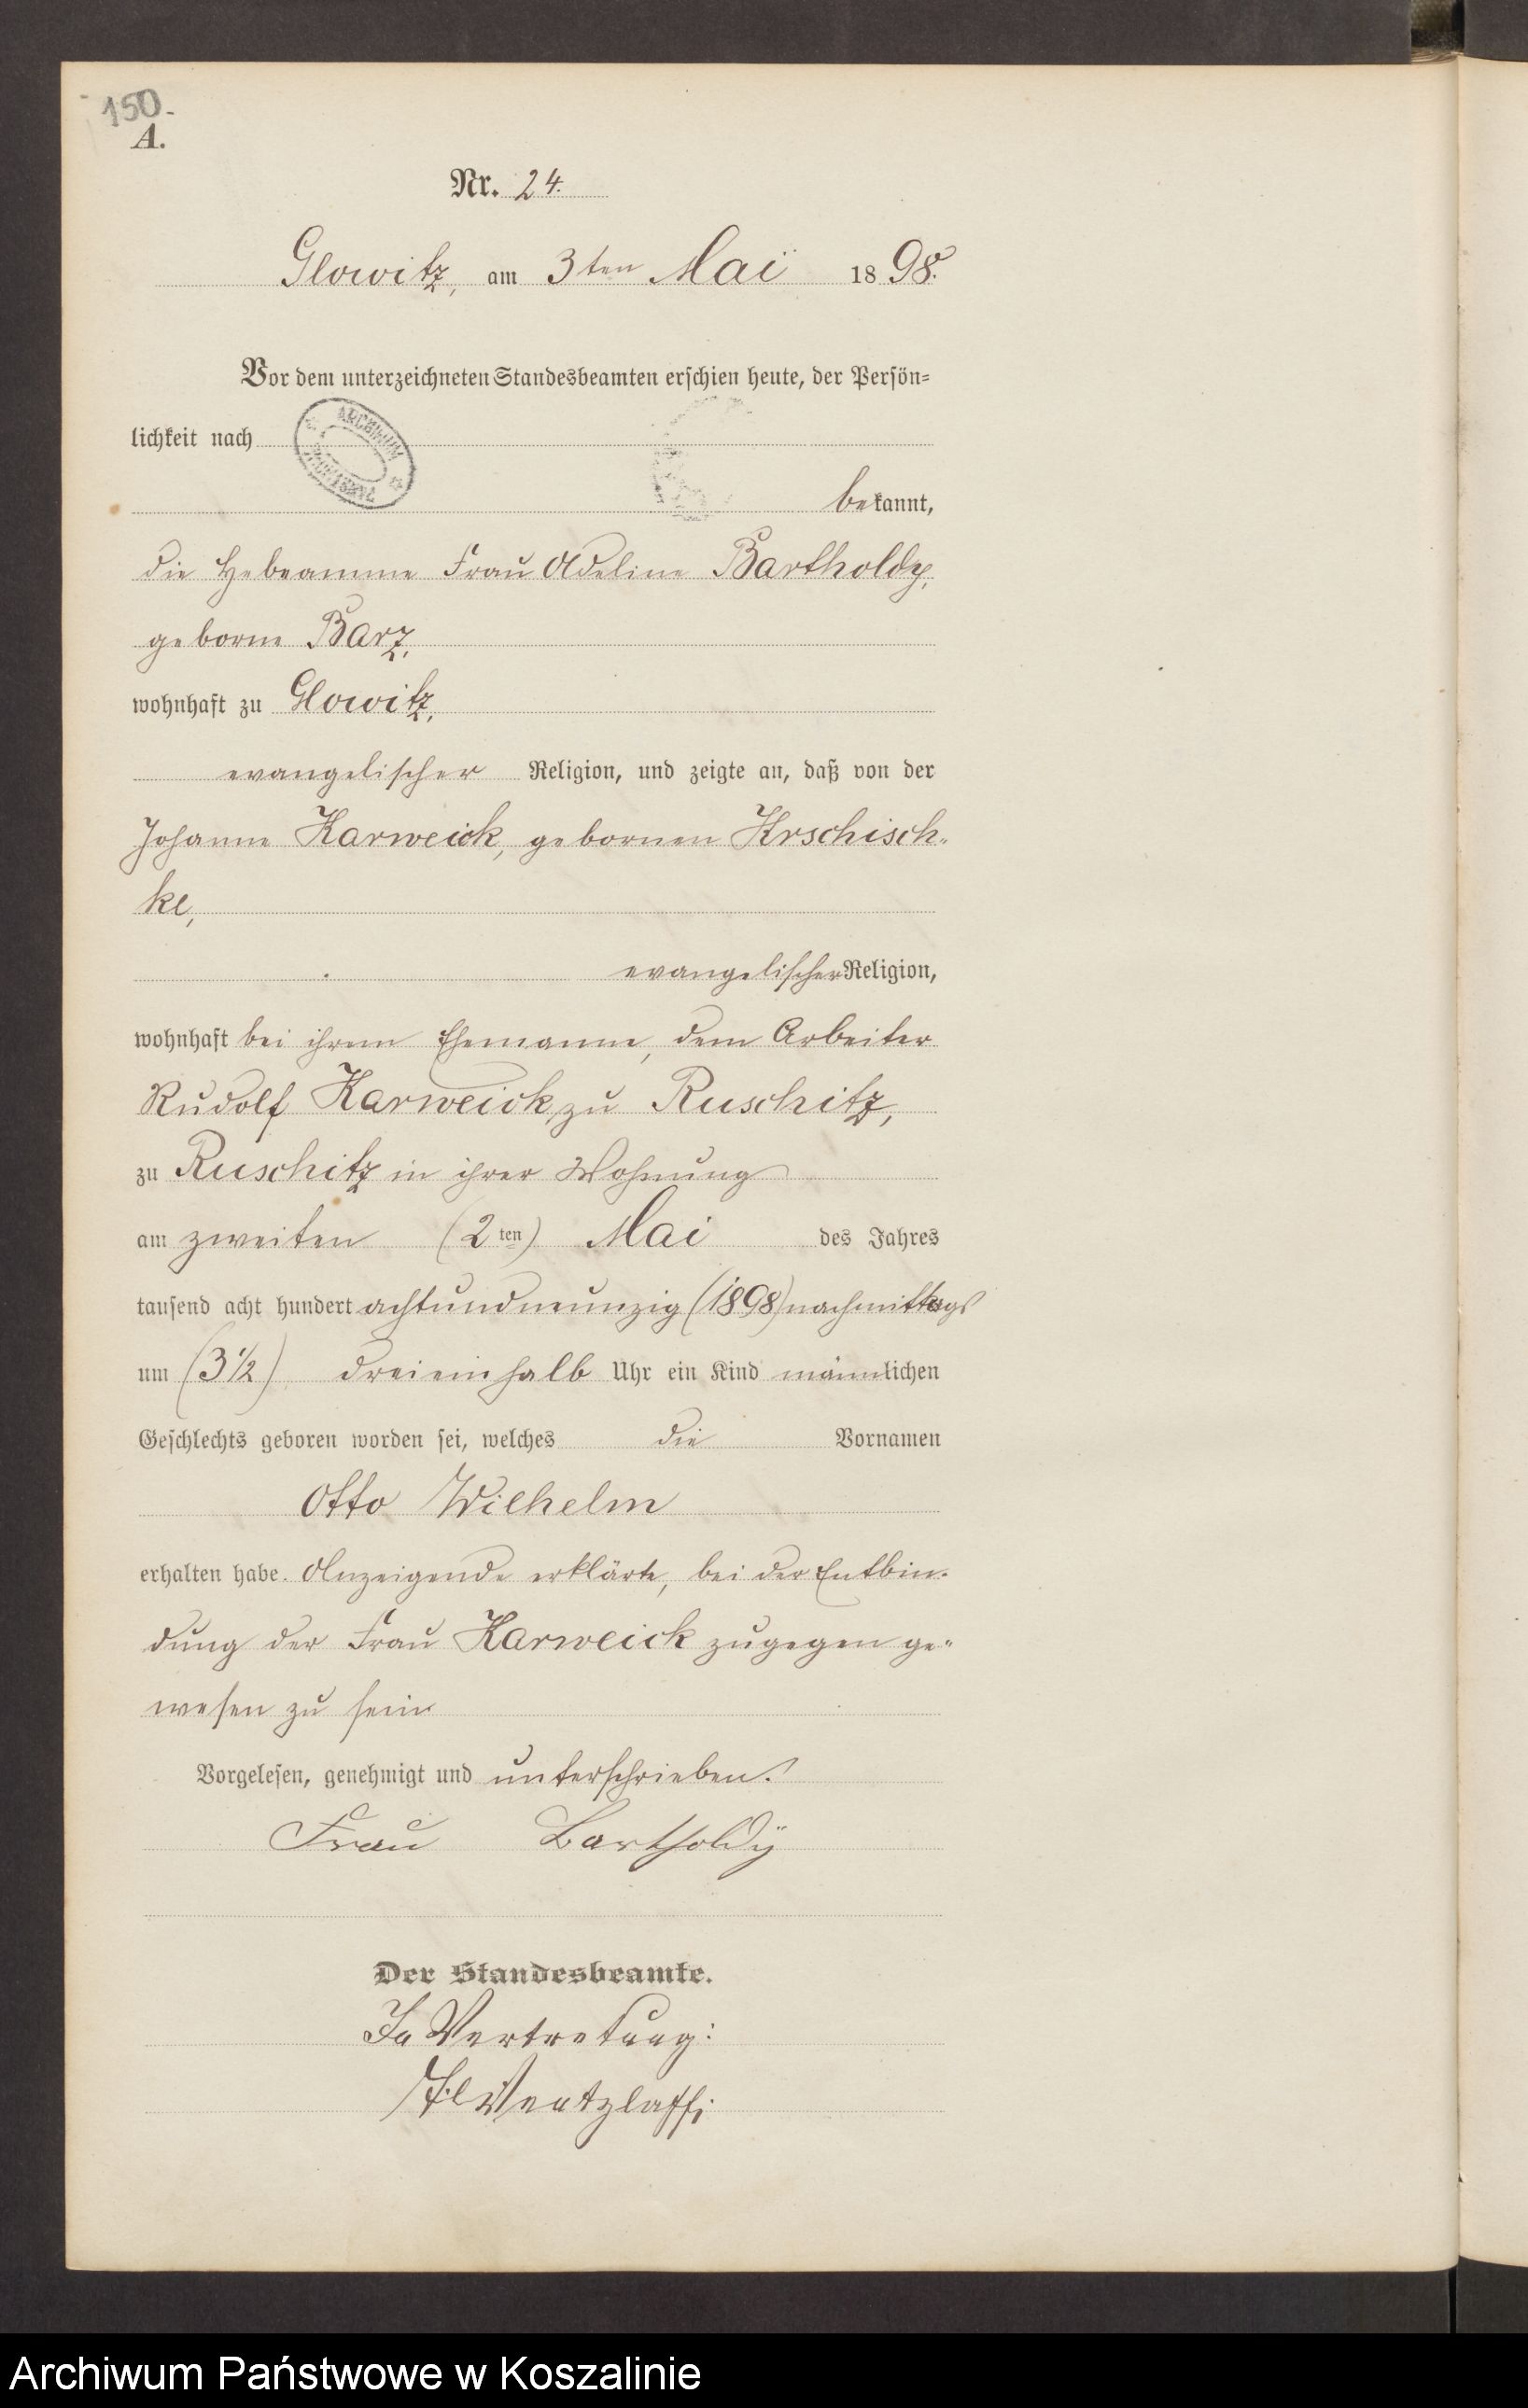 150.
A.
Nr. 24.
Glowitz, am 3ten Mai 1898.
Vor dem unterzeichneten Standesbeamten erschien heute, der Persön=
lichkeit nach
ARCHIWUM
bekannt,
die Hebeamme Frau Adeline Bartholdy,
geborne Barz,
wohnhaft zu Glowitz,
evangelischer Religion, und zeigte an, daß von der
Johanne Karweick, gebornen Krschisch-
ke,
evangelischer Religion,
wohnhaft bei ihrem Ehemanne, dem Arbeiter
Rudolf Karweick, zu Ruschitz,
zu Ruschitz in ihrer Wohnung
am zweiten (2ten) Mai des Jahres
tausend acht hundert achtundneunzig (1898) nachmittags
um (3 1/2) dreieinhalb Uhr ein Kind männlichen
Geschlechts geboren worden sei, welches die Vornamen
Otto Wilhelm
erhalten habe. Anzeigende erklärte, bei der Entbin-
dung der Frau Karweick zugegen ge-
wesen zu sein
Vorgelesen, genehmigt und unterschrieben.
Frau Bartholdÿ
Der Standesbeamte.
In Vertretung:
Wentzlaff.
Archiwum Państwowe w Koszalinie